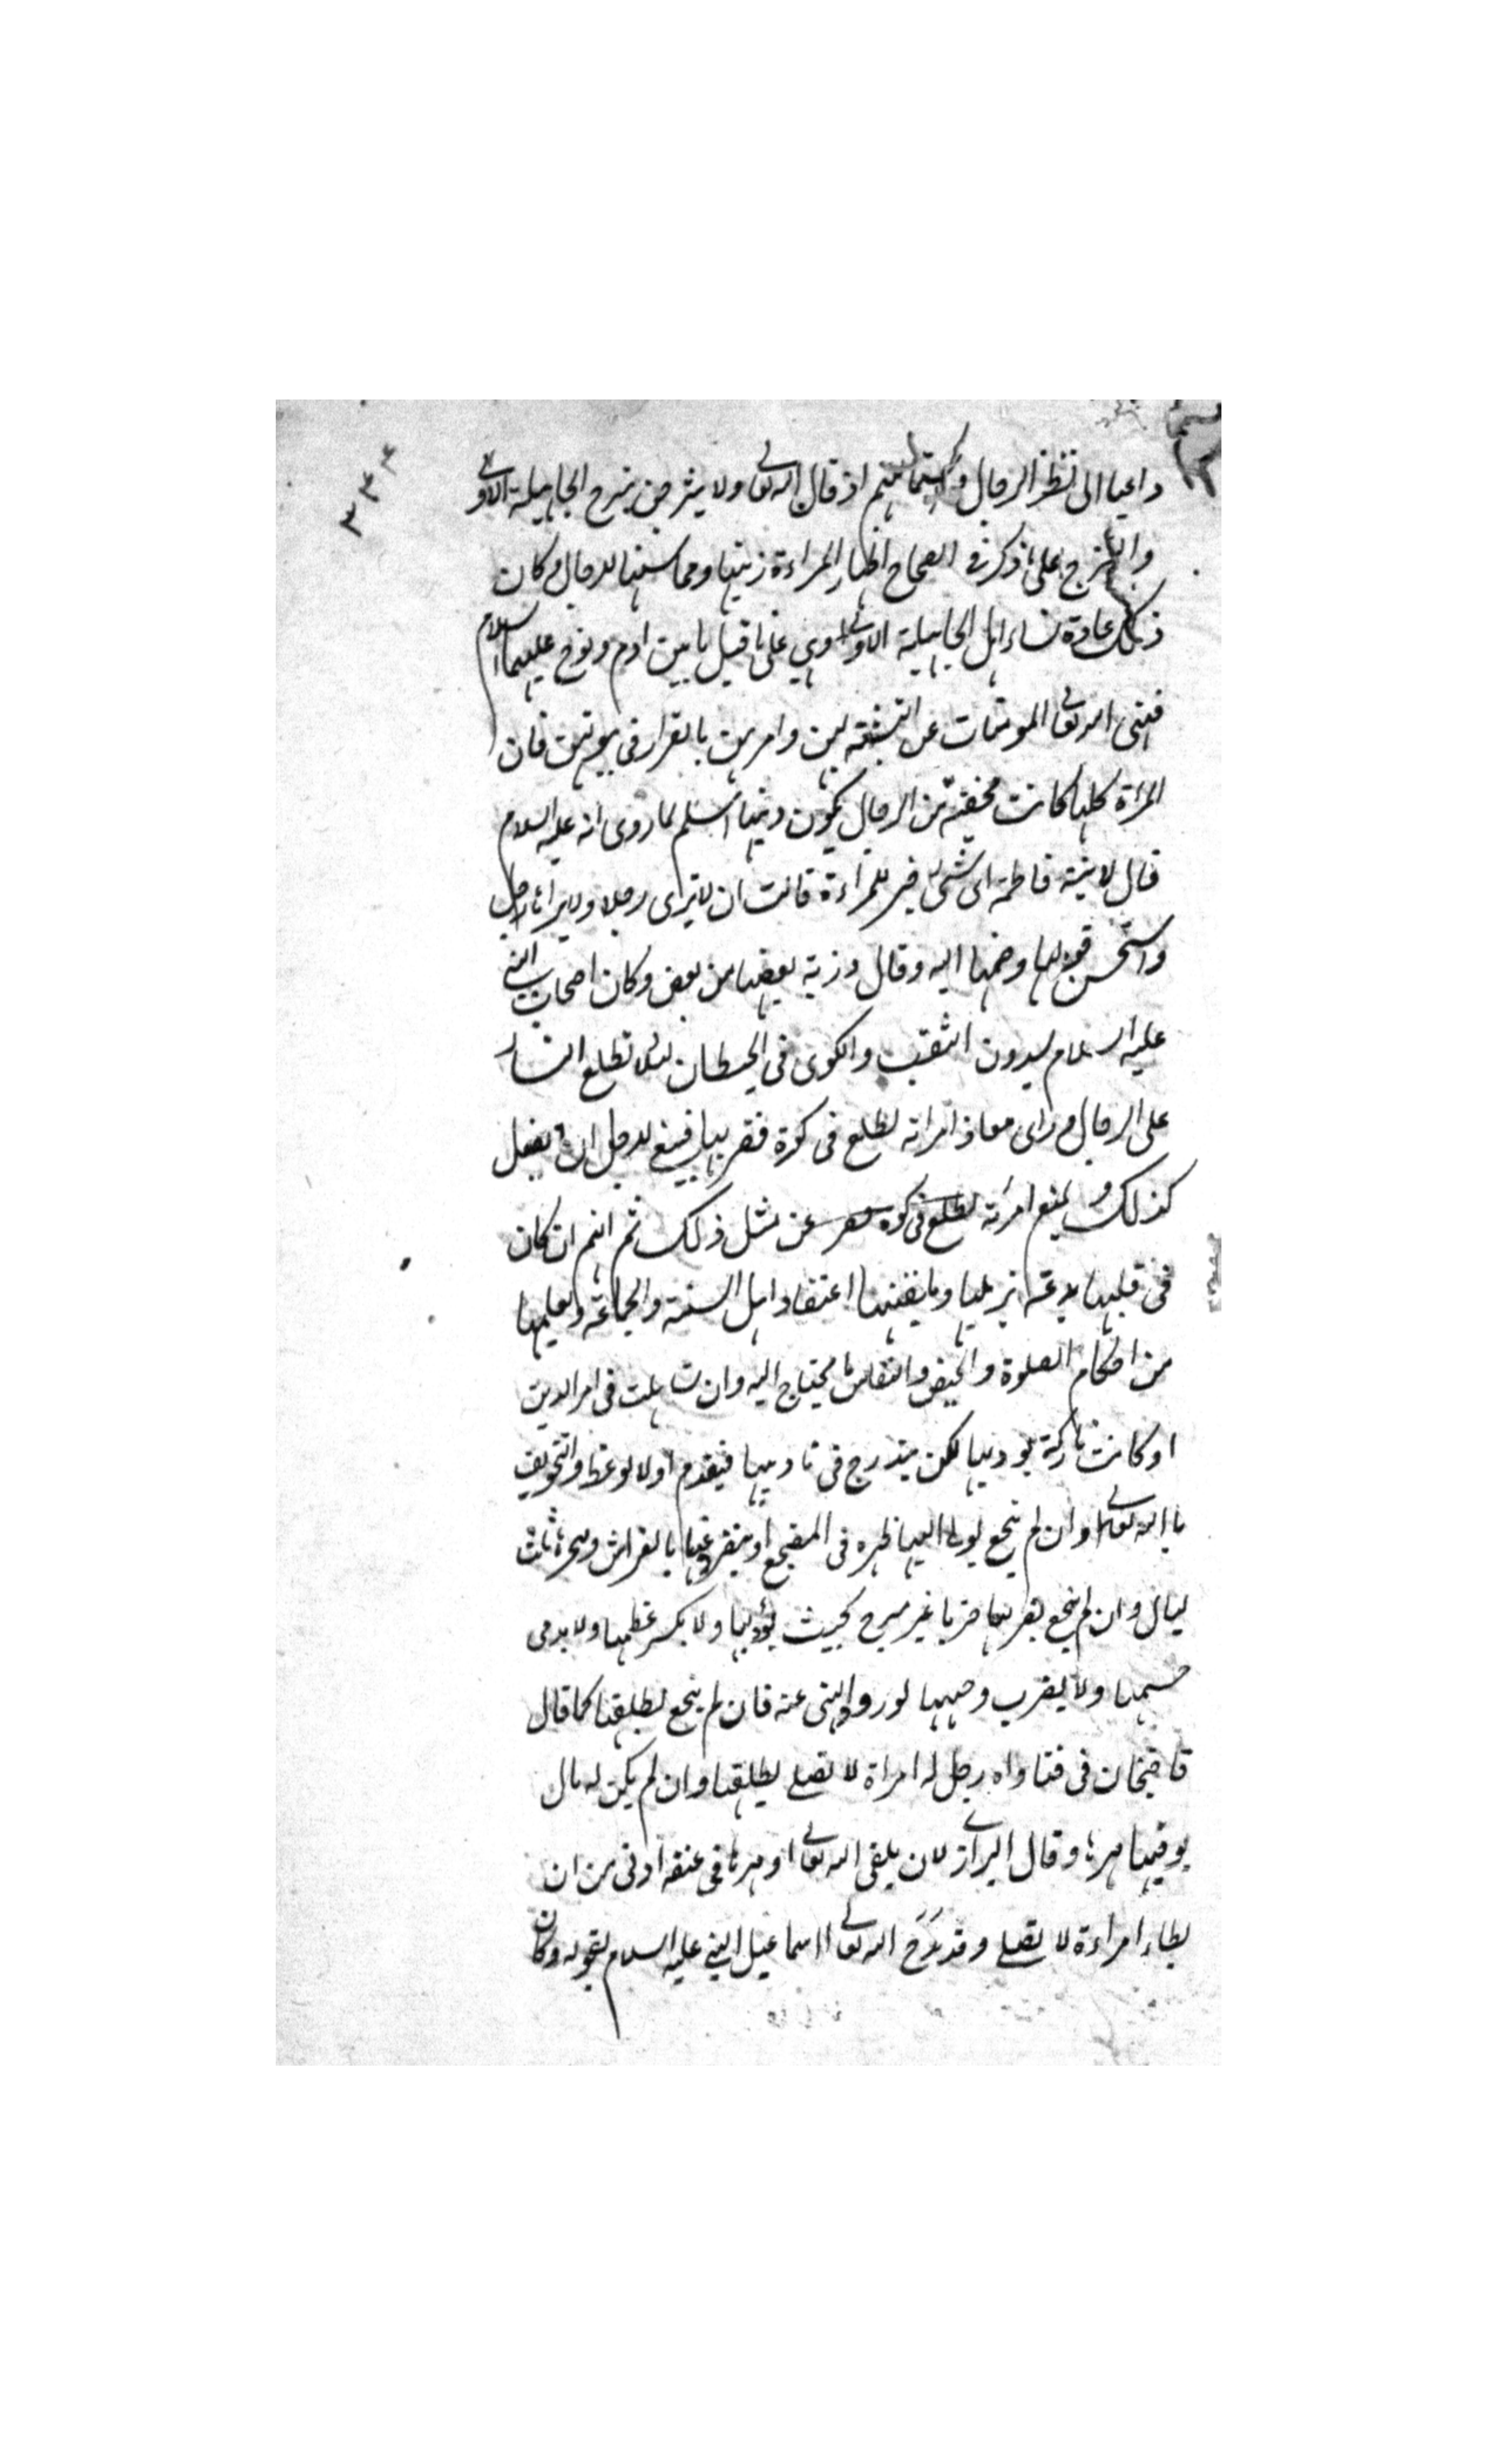 ٣٣٤
داعيا الى نظر الرجال و استمالتهم اذ قال الله تعالى ولا تبرجن تبرج الجاهلية الاولى
والتبرج على ما ذكر في الصحاح اظهار المراءة زينتها ومحاسنها للرجال وكان
ذلك عادة نساء اهل الجاهلية الاولى وهي على ما قيل ما بين ادم ونوح عليهما السلام
فنهى الله تعالى المؤمنات عن التشبه بهن وامرهن بالقرار في بيوتهن فان
المراة كلما كانت مخفية من الرجال يكون دينها اسلم لما روى انه عليه السلام
قال لابنته فاطمة اى شئ خير للمراءة قالت ان لا ترى رجلا ولا يراها رجل
واستحسن قولها وضمها اليه وقال ذرية بعضها من بعض وكان اصحاب النبي
عليه السلام يسدون الثقب والكوى في الحيطان لئلا تطلع النساء
على الرجال و راى معاذ امراته تطلع في كوة فضربها فينبغي للرجل ان يفعل
كذلك و يمنع امراته تطلع في كوة عن مثل ذلك ثم انهم ان كان
في قلبها بدعة يزيلها و يلقنها اعتقاد اهل السنة والجماعة ويعلمها
من احكام الصلوة والحيض والنفاس ما يحتاج اليه وان تساهلت في امر الدين
او كانت تاركة يؤدبها لكن يتدرج في تاديبها فيقدم اولا الوعظ والتخويف
بالله تعالى وان لم ينجع يولى اليها ظهره في المضجع او ينفرد عنها بالفراش ويهجرها ثلث
ليال وان لم ينجع يضربها ضربا غير مبرح بحيث يؤلمها ولا يكسر عظمها ولا يدمى
جسمها ولا يضرب وجهها لورود النهى عنه فان لم ينجع يطلقها كما قال
قاضيخان في فتاواه رجل له امراة لا تصلى يطلقها وان لم يكن له مال
يوفيها مهرها وقال البزازى لان يلقى الله تعالى و مهرها في عنقه اولى من ان
يطاء امراءة لا تصلى و قد مدح الله تعالى اسماعيل النبي عليه السلام بقوله وكان